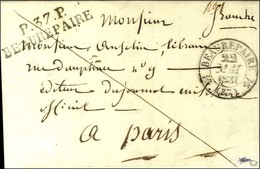 P.37.P.
BEAUREPAIRE
Monsieur
franche
BEAUREPAIRE
22
Monsieur Anselin, libraire
rue dauphine n° 9
éditeur du journal militaire
officiel
a paris